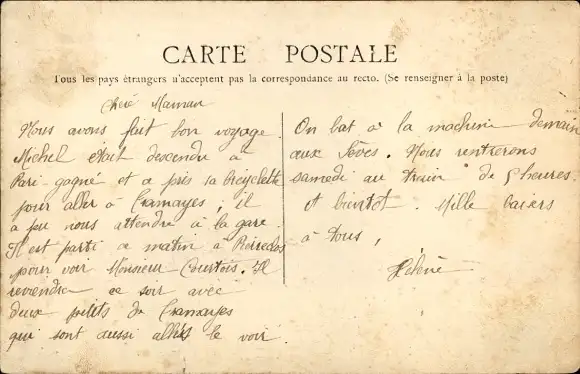 CARTE POSTALE
Tous les pays étrangers n'acceptent pas la correspondance au recto. (Se renseigner à la poste)
Chère Maman
Nous avons fait bon voyage.
Michel était descendu à
Pari-gagné et a pris sa bicyclette
pour aller à Cramayes, il
a pu nous attendre à la gare.
Il est parti ce matin à Pierreclos
pour voir Monsieur Courtois. Il
reviendra ce soir avec
deux petits de Cramayes
qui sont aussi allés le voir.
On bat à la machine demain
aux Sèves. Nous rentrerons
samedi au train de 5 heures.
A bientôt. Mille baisers
à tous,
Hélène